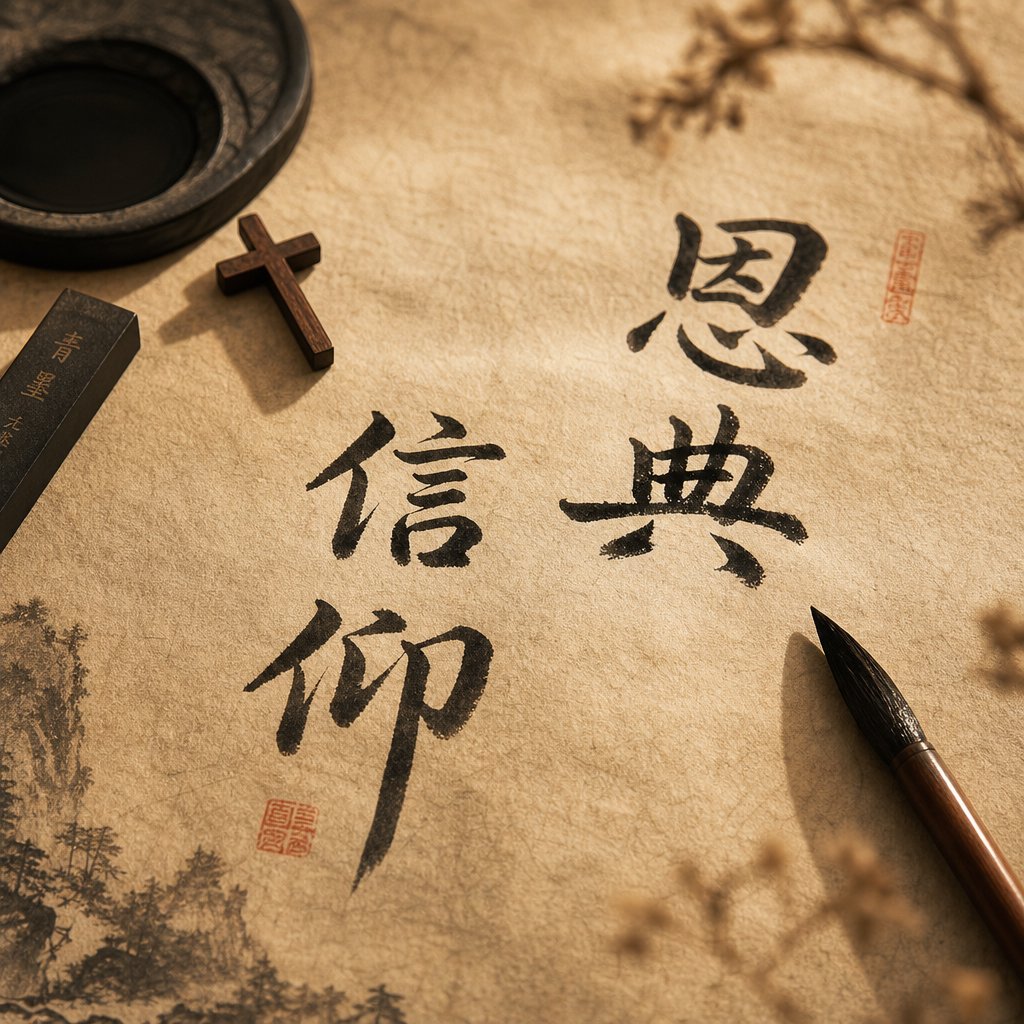 恩典
信仰
青墨